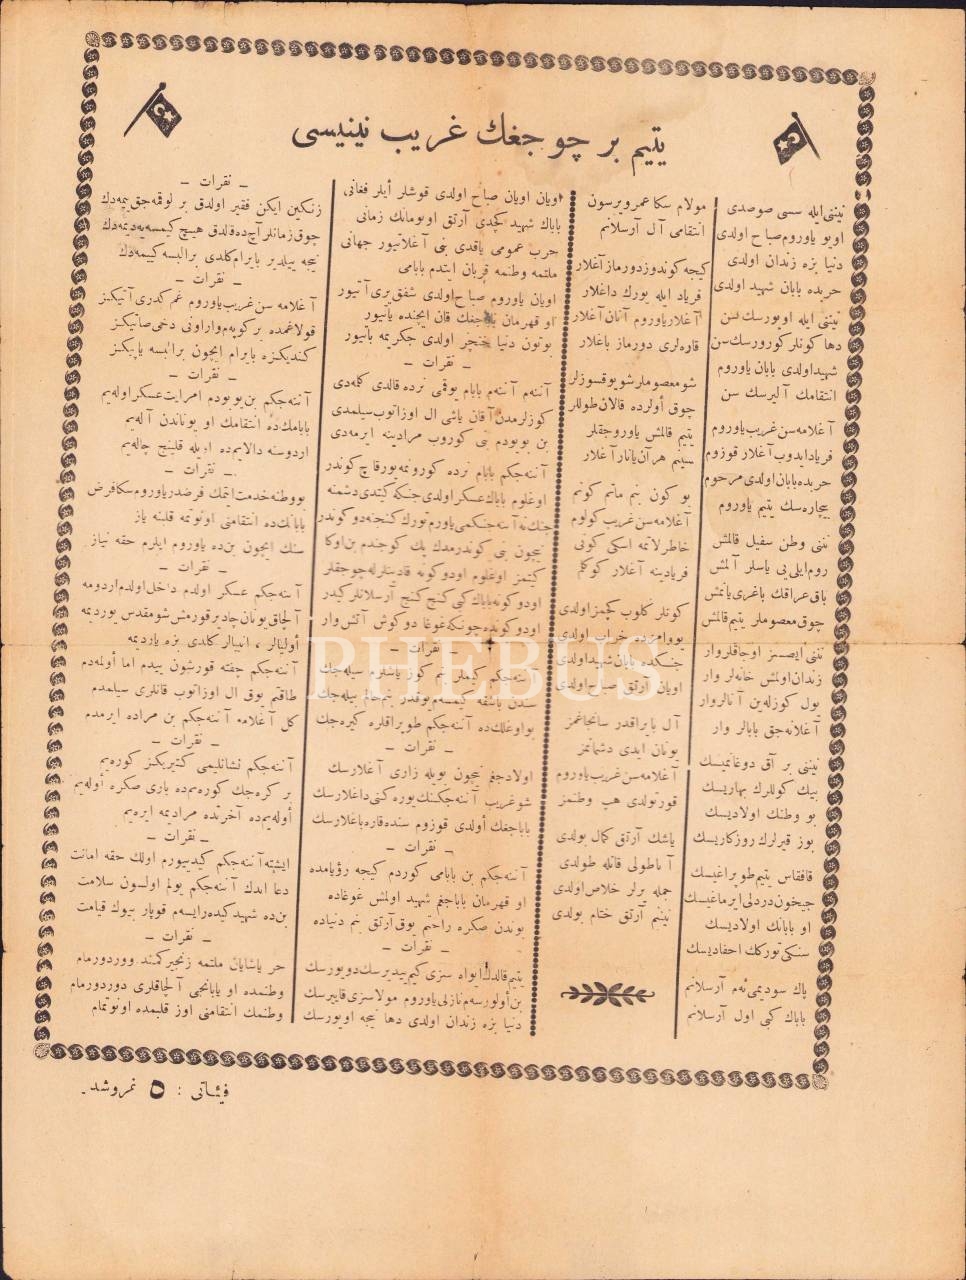 يتيم بر چوجغك غريب نينيسى
نينى ايله سسى صوصدى
اويو ياوروم صباح اولدى
دنيا بزه زندان اولدى
حربده بابان شهيد اولدى
نينى ايله اويورسك سن
دها كونلر كورورسك سن
شهيد اولدى بابان ياوروم
انتقامك آليرسك سن
آغلامه سن غريب ياوروم
فرياد ايدوب آغلار قوزوم
حربده بابان اولدى مرحوم
بيچاره سك يتيم ياوروم
ننى وطن سفيل قالمش
روم ايلى يى ياسلر آلمش
باق عراقك باغرى يانمش
چوق معصوملر يتيم قالمش
ننى ايصسز اوجاقلر وار
زندان اولمش خانه لر وار
يول كوزله ين آنالر وار
آغلانه جق بابالر وار
نينى بر آق دوغانميسك
بيك كوللرك بهاريسك
بو وطنك اولاديسك
بوز قيرلرك روزكاريسك
قافقاس يتيم طوپراغيسك
جيحون دردلى ايرماغيسك
او بابانك اولاديسك
سنكى توركك احفاديسك
پاك سوديمى ئه م آرسلانم
باباك كبى اول آرسلانم
مولام سكا عمر ويرسون
انتقامى آل آرسلانم
كيجه كوندوز دورماز آغلار
فرياد ايله يورك داغلار
آغلار ياوروم آنان آغلار
قاره لرى دورماز باغلار
شو معصوملر شو يوقسوزلر
چوق أولرده قالان طوللر
يتيم قالمش ياوروجقلر
سينم هر آن يانار آغلار
بو كون بنم ماتم كونم
آغلامه سن غريب كولوم
خاطرلاتمه اسكى كونى
فريادينه آغلار كوكلم
كونلر كلوب كچمز اولدى
يووامزده خراب اولدى
جنكده بابان شهيد اولدى
اويان آرتق صباح اولدى
آل بايراقدر سانجاغمز
يونان ايدى دشمانمز
آغلامه سن غريب ياوروم
قورتولدى هپ وطنمز
ياشك آرتق كمال بولدى
آناطولى قانله طولدى
جمله يرلر خلاص اولدى
نينيم آرتق ختام بولدى
اويان اويان صباح اولدى قوشلر ايلر فغانى
باباك شهيد كچدى آرتق اويومانك زمانى
حرب عمومى ياقدى بنى آغلاتيور جهانى
ملتمه وطنمه قربان ايتدم بابامى
اويان ياوروم صباح اولدى شفق يرى آتيور
او قهرمان باباجغك قان ايچنده ياتيور
بوتون دنيا خنجر اولدى جكريمه باتيور
ـ نقرات ـ
آننه م آننه م بابام يوقمى نرده قالدى كلمدى
كوزلرمدن آقان ياشى ال اوزاتوب سيلمدى
بن بويودم بنى كوروب مرادينه ايرمه دى
آننه جكم بابام نرده كورونمه يور قاچ كوندر
اوغلوم باباك عسكر اولدى جنكه كيتدى دشمنه
جنك نه آننه جنكمى ياورم تورك كنجنه دوكوندر
نيچون بنى كوندرمدك پك كوجندم بن اوكا
كيتمز اوغلوم اودوكونه قادينلرله چوجقلر
اودوكونه باباك كبى كنج كنج آرسلانلر كيدر
اودوكونده چونكه غوغا دوكوش آتش وار
ـ نقرات ـ
آننه جكم كيملر بنم كوز ياشلرم سيله جك
سندن باشقه كيمسه م يوقدر بنم حالم بيله جك
بو اوغلك ده آننه جكم طوپراقلره كيره جك
ـ نقرات ـ
اولادجغم نيچون بويله زارى آغلارسك
شو غريب آننه جكنك يوره كنى داغلارسك
باباجغك أولدى قوزوم سنده قاره باغلارسك
ـ نقرات ـ
آننه جكم بن بابامى كوردم كيجه رؤيامده
او قهرمان باباجغم شهيد اولمش غوغاده
بوندن صكره راحتم يوق آرتق بنم دنياده
ـ نقرات ـ
يتيم قالدك ايواه سزى كيم بيدير سك دويورسك
بن أولورسه م نازلى ياوروم مولا سزى قاييرسك
دنيا بزه زندان اولدى دها نيجه اويورسك
ـ نقرات ـ
زنكين ايكن فقير اولدق بر لوقمه جق ييمه دك
چوق زمانلر آچ ده قالدق هيچ كيمسه يه ديمه دك
نيجه ييلدير بايرام كلدى بر البسه كييمه دك
ـ نقرات ـ
آغلامه سن غريب ياوروم غم كدرى آتيكز
قولاغمده بر كوپه م وار اونى دخى صاتيكز
كنديكزه بايرام ايچون بر البسه ياپيكز
ـ نقرات ـ
آننه جكم بن بويودم امر ايت عسكر اوله يم
بابامك ده انتقامك او يوناندن آله يم
اردوسنه دالايم ده اويله قلينج چاله يم
ـ نقرات ـ
بو وطنه خدمت ايتمك فرضدر ياوروم سكا فرض
بابانك ده انتقامنى اونوتمه قلبنه ياز
سنك ايچون بن ده ياوروم ايلرم حقه نياز
ـ نقرات ـ
آننه جكم عسكر اولدم داخل اولدم اردومه
آلچاق يونان چادير قورمش شو مقدس يورديمه
أولياالر ، انبيالر كلدى بزه ياردیمه
آننه جكم چفته قورشون ييدم اما أولمه دم
طاقتم يوق ال اوزاتوب قانلرى سيلمدم
كل آغلامه آننه جكم بن مراده ايرمدم
ـ نقرات ـ
آننه جكم نشانليمى كتيريكز كوره يم
بر كره جك كوره يم ده بارى صكره أوله يم
أوله يم ده آخرتده مراديمه ايره يم
ـ نقرات ـ
ايشته آننه جكم كيدييورم اولك حقه امانت
دعا ايدك آننه جكم يولم اولسون سلامت
بن ده شهيد كيده رايسه م قوپار بيوك قيامت
ـ نقرات ـ
حر ياشايان ملتمه زنجير كمند ووردورمام
وطنمده او يابانجى آلچاقلرى دوردورمام
وطنمك انتقامنى اوز قلبمده اونوتمام
فيئاتى : ٥ غروشدر.
PHEBUS